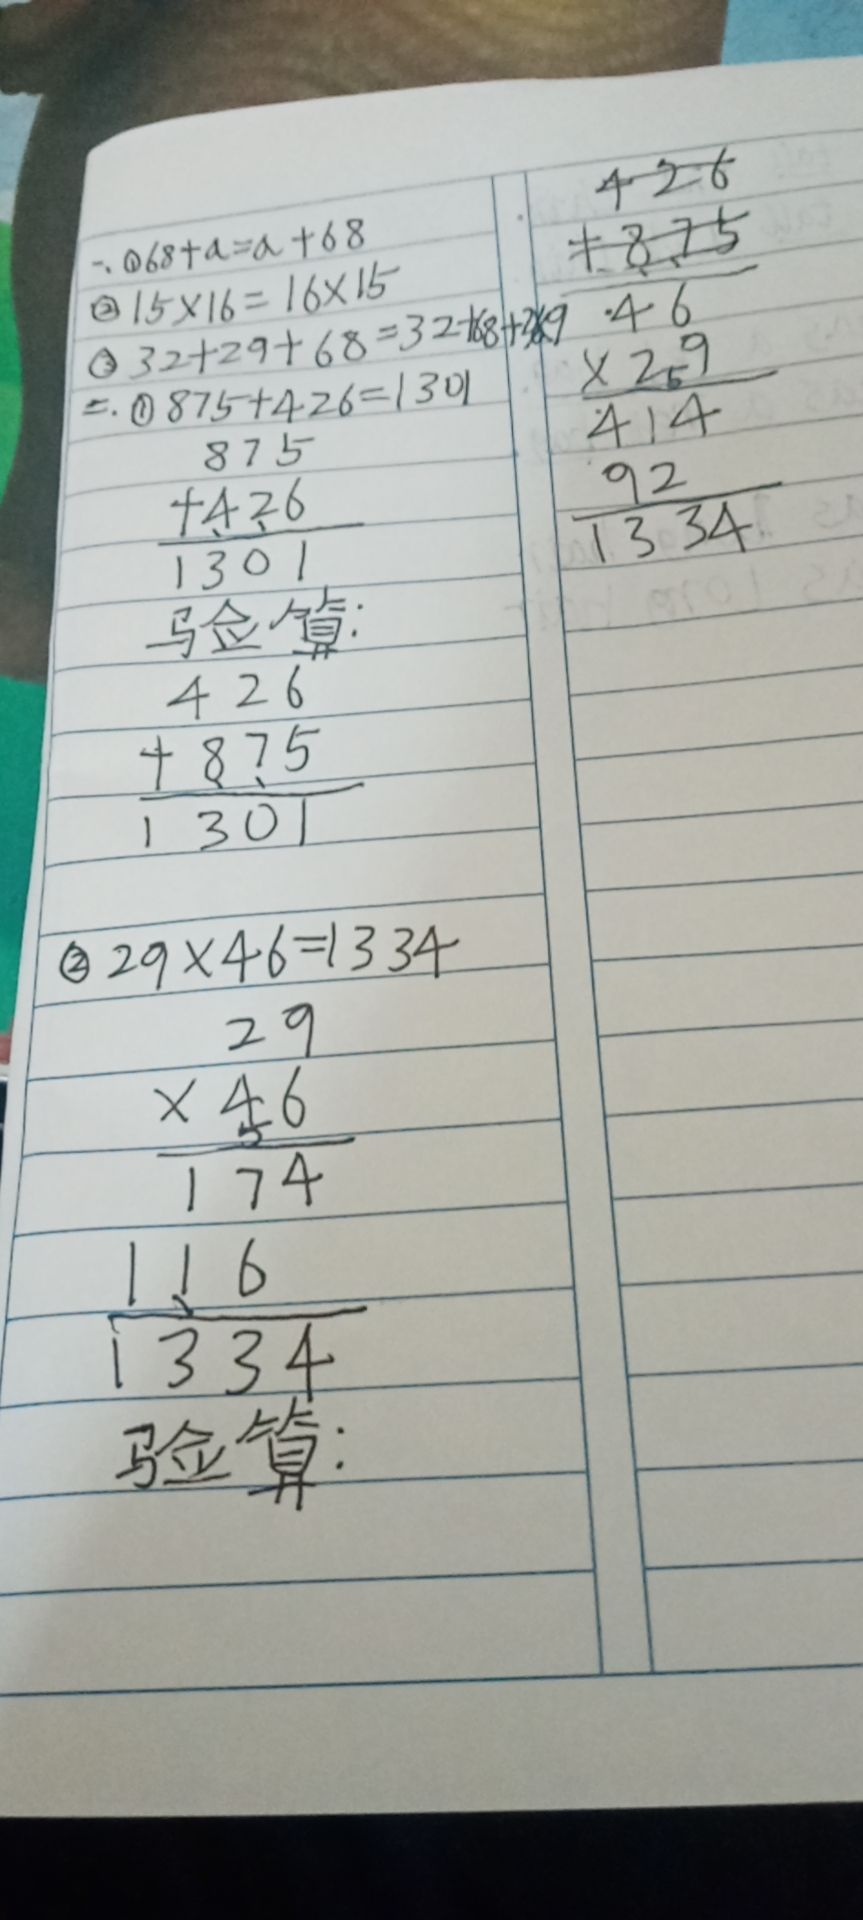 一、①68+a=a+68
②15×16=16×15
③32+29+68=32+68+29
二、①875+426=1301
875
+426
1301
验算:
426
+875
1301
②29×46=1334
29
×46
5
174
116
1334
验算:
426
+875
46
×29
5
414
92
1334